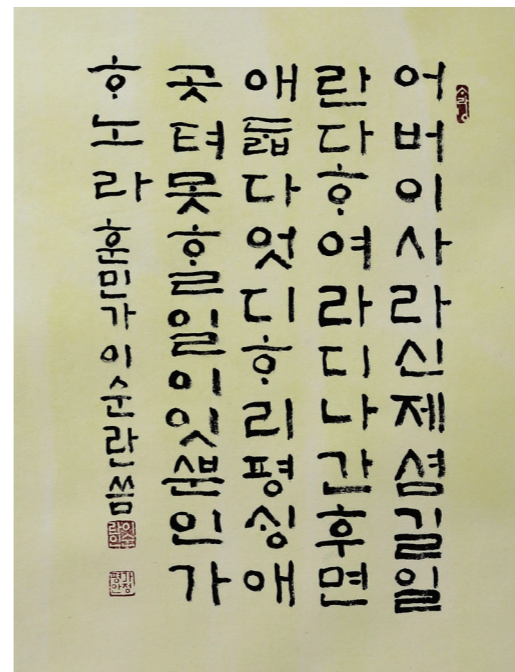 어버이사라신제셤길일
란다ᄒᆞ여라디나간후면
애듧다엇디ᄒᆞ리평ᄉᆡᆼ애
곳텨못ᄒᆞᆯ일이잇ᄲᅮᆫ인가
ᄒᆞ노라 훈민가이순란씀
이순란인
가정평안